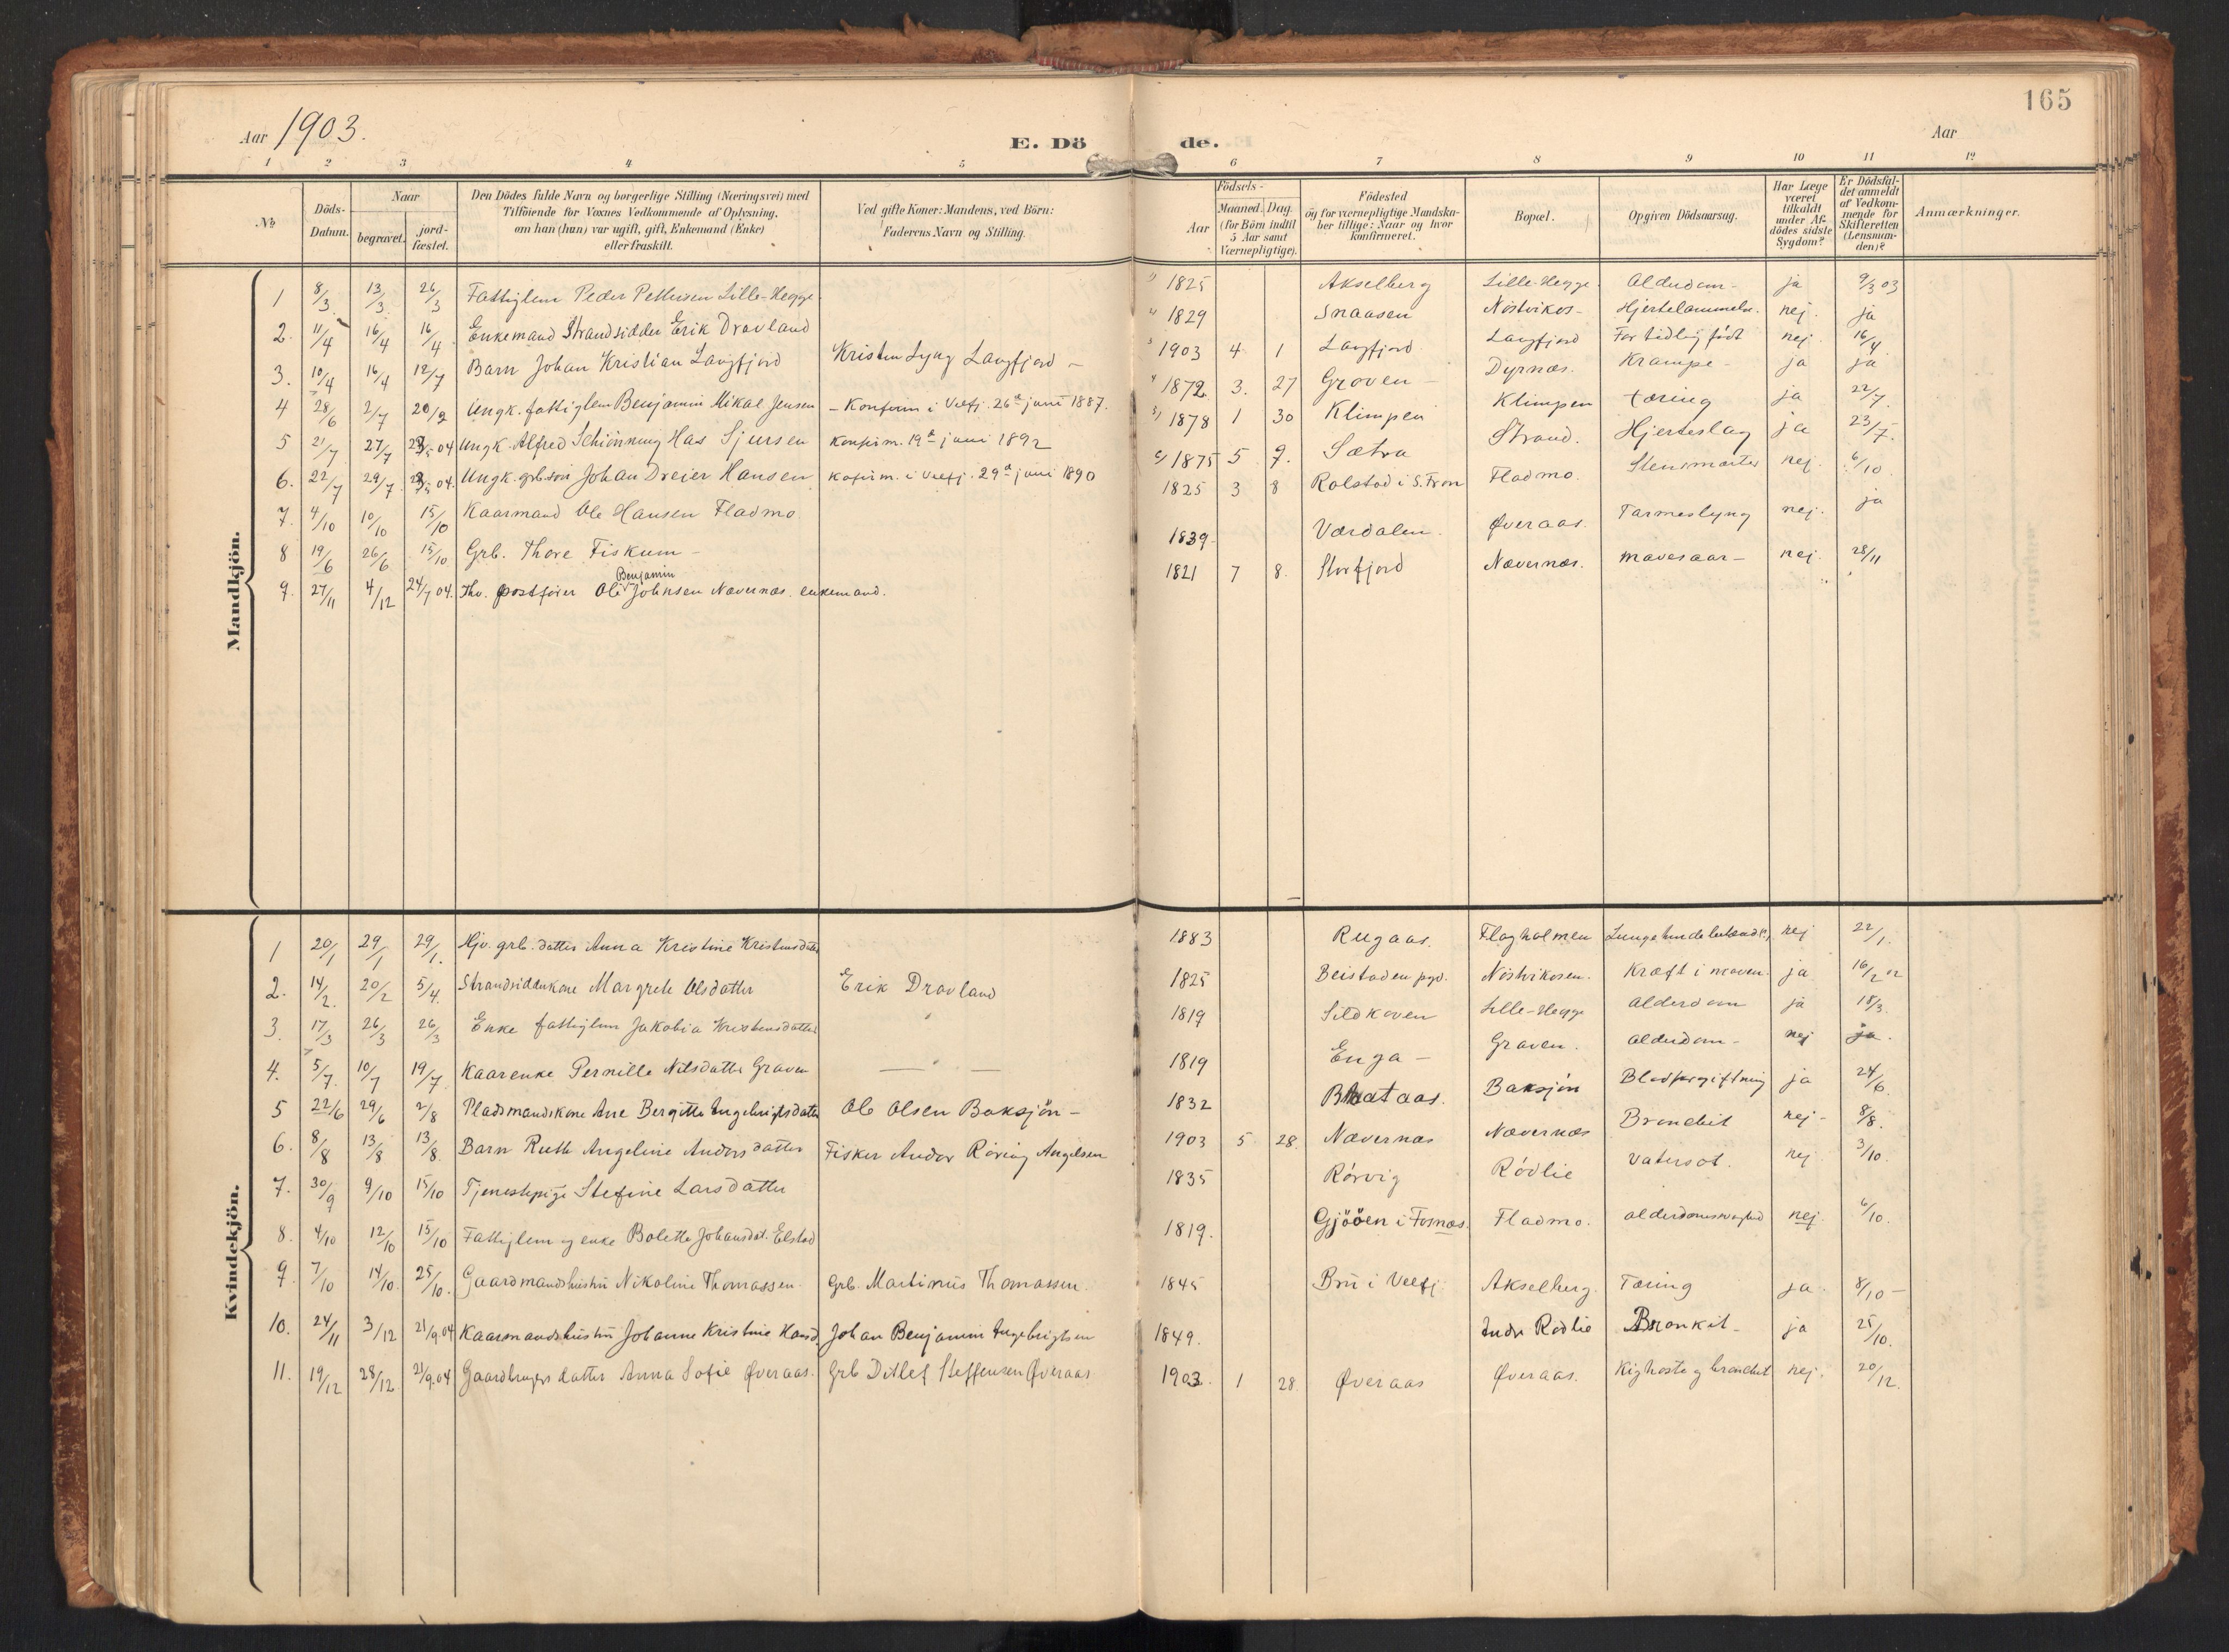 165
Aar 1903.
E. Dö de.
Aar
1 2 3 4 5 6 7 8 9 10 11 12
№
Döds-Datum.
Naar begravet. jord-fæstet.
Den Dödes fulde Navn og borgerlige Stilling (Næringsvei) med Tilföiende for Voxnes Vedkommende af Oplysning, om han (hun) var ugift, gift, Enkemand (Enke) eller fraskilt.
Ved gifte Koner: Mandens, ved Börn: Faderens Navn og Stilling.
Födsels-
Aar Maaned. Dag. (for Börn indtil 5 Aar samt Værnepligtige).
Födested og for værnepligtige Mandska-ber tillige: Naar og hvor konfirmeret.
Bopæl.
Opgiven Dödsaarsag.
Har Læge været tilkaldt under Af-dödes sidste Sygdom?
Er Dödsfal-det anmeldt af Vedkom-mende for Skifteretten (Lensman-den)?
Anmærkninger.
Mandkjön.
1 8/3 13/3 26/3 Fattiglem Peder Pettersen Lille-Hegge 1825 Akselberg Lille-Hegge Alderdom- ja 9/3 03
2. 11/4 16/4 16/4 Enkemand Strandsidder Erik Dravland 1829 Snaasen Nostvikos- Hjertelammelse. nej. ja
3. 10/4 16/4 12/7 Barn Johan Kristian Langfjord Kristen Lyng Langfjord - 1903 4 1 Langfjord Langfjord For tidlig født nej 16/4
4 28/6 2/7 20/9 Ungk. fattiglem Benjamin Mikal Jensen - Konfirm i Velfj. 26de juni 1887. 1872 3. 27 Groven - Dyrnæs. Krampe - ja ja
5 21/7 27/7 04 Ungk. Alfred Schiønning Has Sjursen Konfirm. 19de juni 1892 1878 1 30 Klimpen Klimpen tæring ja 22/7.
6. 22/7 29/7 04. Ungk. grb.søn Johan Dreier Hansen Kofirm. i Velfj. 29de juni 1890 1875 5 9. Sætra Strand. Hjerteslag ja 23/7.
7. 4/10 10/10 15/10 Kaarmand Ole Hansen Fladmo 1825 3 8 Rolstad i S. Fron Fladmo. Stensmerter nej 6/10
8 19/6 26/6 15/10 Grb. Thore Fiskum - 1839 Værdalen. Øveraas. Tarmeslyng nej. ja
9. 27/11 4/12 24/7 04. Fhv. postfører Ole Benjamin Johnsen Nævernæs. enkemand. 1821 7 8. Storfjord Nævernæs. mavesaar - nej. 28/11
Kvindekjön.
1 20/1 29/1 29/1. Hjv. grb. datter Anna Kristine Kristensdatter 1883 Rugaas. Flagholmen nej 22/1.
2. 14/2. 20/2 5/4. Strandsidderkone Margrete Olsdatter Erik Dravland 1825 Beistaden pgd. Nostvikosen. Kræft i maven. ja 16/2 02
3. 17/3 26/3 26/3 Enke fattiglem Jakobia Kristensdatter 1819 Sildkoven Lille-Hegge alderdom ja 18/3.
4. 5/7. 10/7 19/7. Kaarenke Pernille Nilsdatter Graven 1819 Enga - Graven. alderdom - nej ja.
5 22/6 29/6 2/8 Pladsmandskone Ane Bergitte Ingebrigtsdatter Ole Olsen Baksjön - 1832 Baksjön Blodforgiftning ja 24/6
6. 8/8 13/8 13/8. Barn Ruth Angeline Andorsdatter Fisker Andor Röring Angelsen 1903 5 28. Nævernæs Nævernæs Bronchit nej - 8/8.
7. 30/9 9/10 15/10 Tjenestepige Stefine Larsdatter 1835 Rórvig Ródlie Vatersot. nej 3/10.
8. 4/10 12/10 15/10 Fattiglem og enke Bolette Johansdat. Elstad 1819. Gjööen i Fosnæs. Fladmo. alderdomssvaghed nej 6/10.
9. 7/10 14/10. 25/10. Gaardmandshustru Nikoline Thomassen. Grb. Martinus Thomassen. 1845 Bru i Velfj. Akselberg. Tæring ja. 8/10 -
10. 24/11 3/12 21/9.04 Kaarmandshustru Johanne Kristine Hansd Johan Benjamin Ingebrigtsen 1849. Indre Rødlie Bronkit - ja 25/10.
11. 19/12 28/12 21/9.04 Gaardbrugers datter Anna Sofie Øveraas. Grb Ditlef Steffensen Øveraas 1903. 1 28. Øveraas Øveraas. Kighoste og bronchit nej. 20/12.